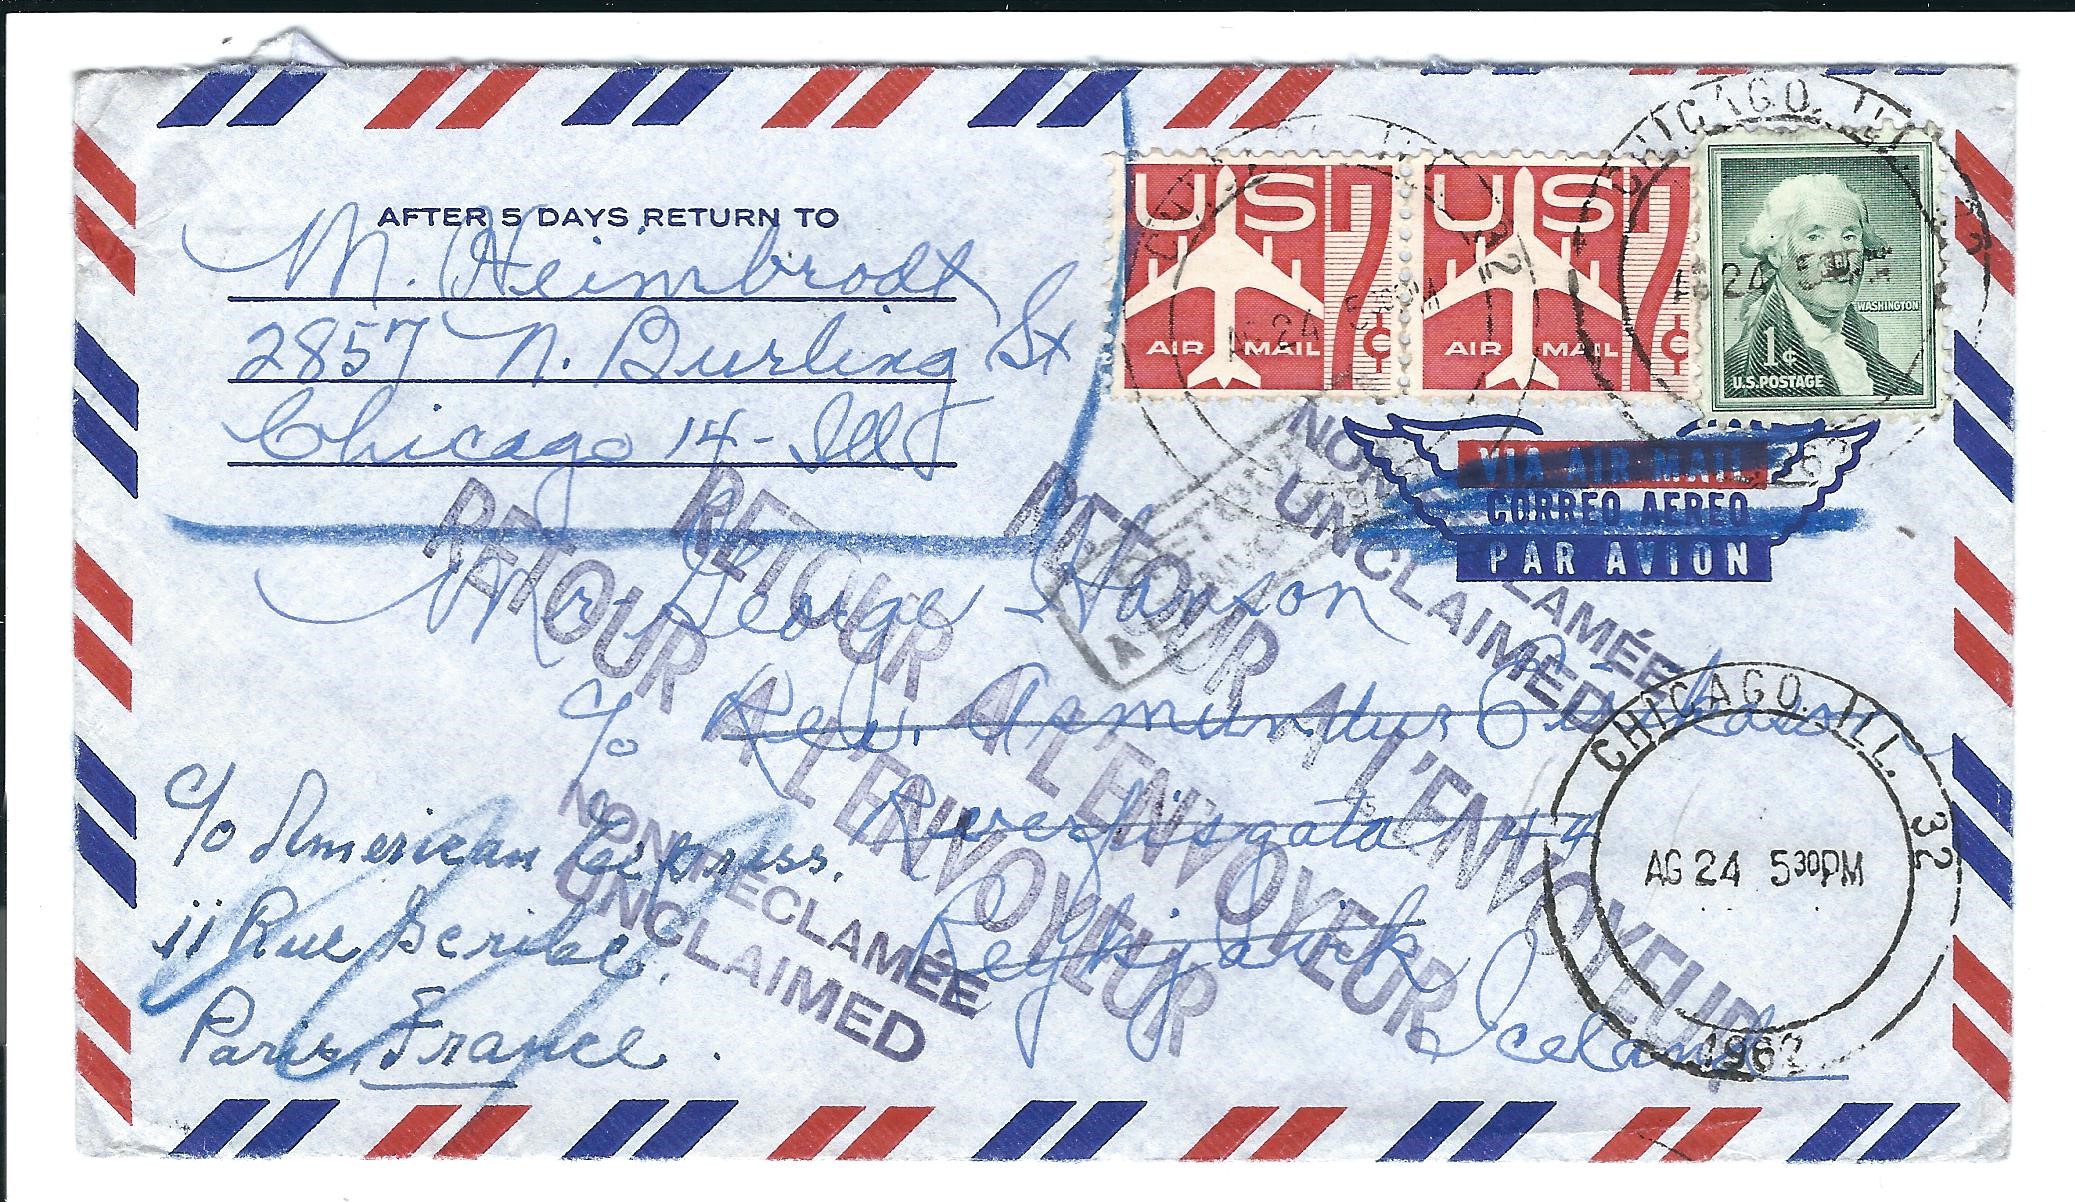 AFTER 5 DAYS RETURN TO
M. Heimbrodt
2857 N. Burling St
Chicago 14 - Ill
US 7¢
AIR MAIL
US 7¢
AIR MAIL
WASHINGTON
1¢
U.S. POSTAGE
CHICAGO, ILL.
AG 24 5 30 PM
CHICAGO, ILL.
AG 24 5 30 PM
VIA AIR MAIL
CORREO AEREO
PAR AVION
NON RECLAMÉE
UNCLAIMED
RETOUR A L'ENVOYEUR
RETOUR A L'ENVOYEUR
RETOUR A L'ENVOYEUR
Mr George Hanson
c/o Rev. Asmundur
44
Reykjavik
Iceland
c/o American Express.
11 Rue Scribe.
Paris, France.
NON RECLAMÉE
UNCLAIMED
CHICAGO, ILL. 32
AG 24 5 30 PM
1962